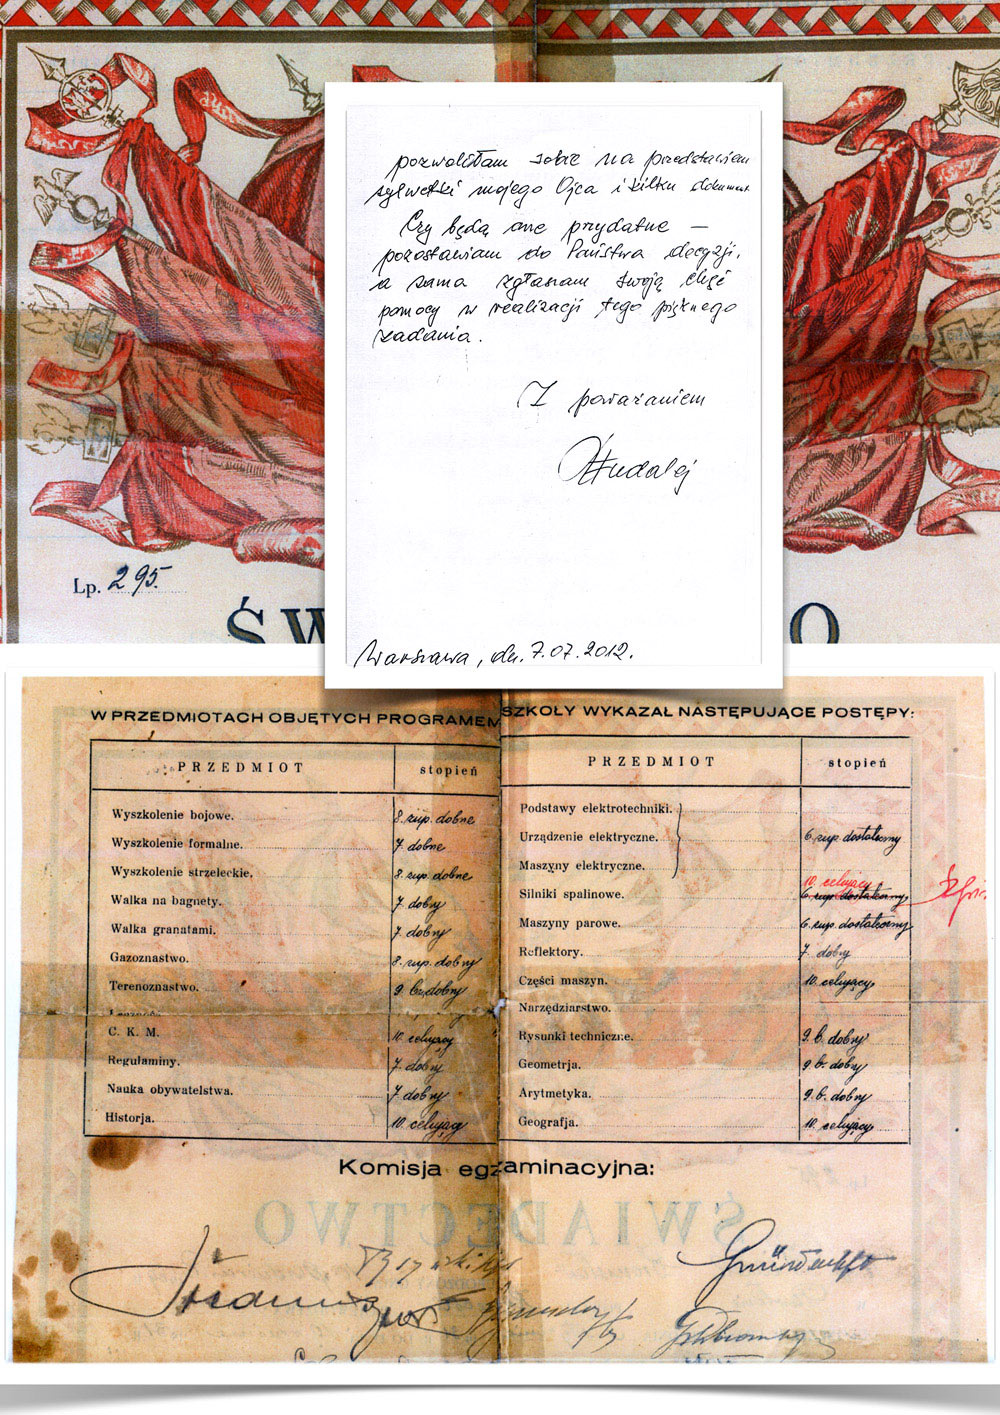 pozwoliłam sobie na przedstawien
sylwetki mojego Ojca i kilku dokument
Czy będą one przydatne –
pozostawiam do Państwa decyzji,
a sama zgłaszam swoją chęć
pomocy w realizacji tego pięknego
zadania.
Z poważaniem
Warszawa, dn. 7.07.2012.
Lp. 295.
ŚW
O
W PRZEDMIOTACH OBJĘTYCH PROGRAMEM SZKOŁY WYKAZAŁ NASTĘPUJĄCE POSTĘPY:
PRZEDMIOT stopień
Wyszkolenie bojowe. 8. zup. dobne
Wyszkolenie formalne. 7. dobne
Wyszkolenie strzeleckie. 8. zup. dobne
Walka na bagnety. 7. dobry
Walka granatami. 7. dobry
Gazoznastwo. 8. zup. dobry
Terenoznastwo. 9. b. dobry
C. K. M. 10. celujący
Regulaminy. 7. dobry
Nauka obywatelstwa. 7 dobry
Historja. 10. celujący
PRZEDMIOT stopień
Podstawy elektrotechniki.
Urządzenie elektryczne. 6. zup. dostateczny
Maszyny elektryczne.
10. celujący
Silniki spalinowe. 6. zup. dostateczny
Maszyny parowe. 6. zup. dostateczny
Reflektory. 7 dobry
Części maszyn. 10. celujący
Narzędziarstwo.
Rysunki techniczne. 9. b. dobry
Geometrja. 9 b. dobry
Arytmetyka. 9. b. dobry
Geografja. 10. celujący
Komisja egzaminacyjna:
ŚWIADECTWO